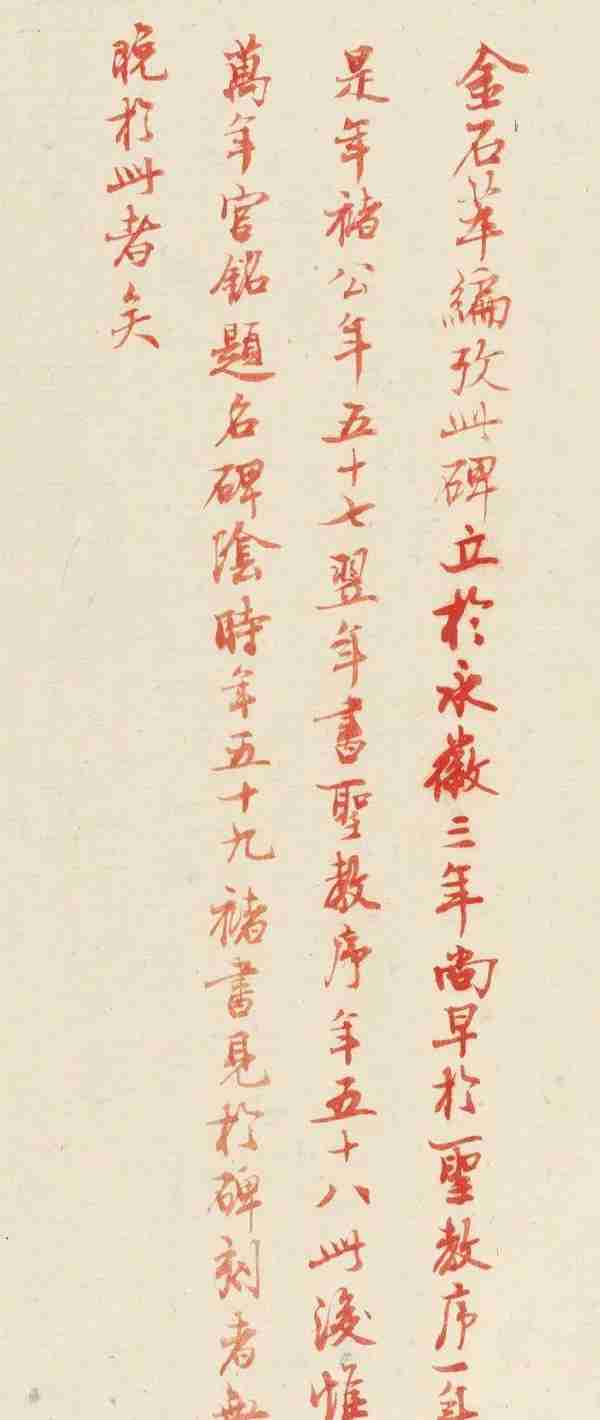 金石萃編攷此碑立於永徽三年尚早於聖教序一年
是年褚公年五十七翌年書聖教序年五十八此後惟
萬年宮銘題名碑陰時年五十九褚書見於碑刻者無
晚於此者矣